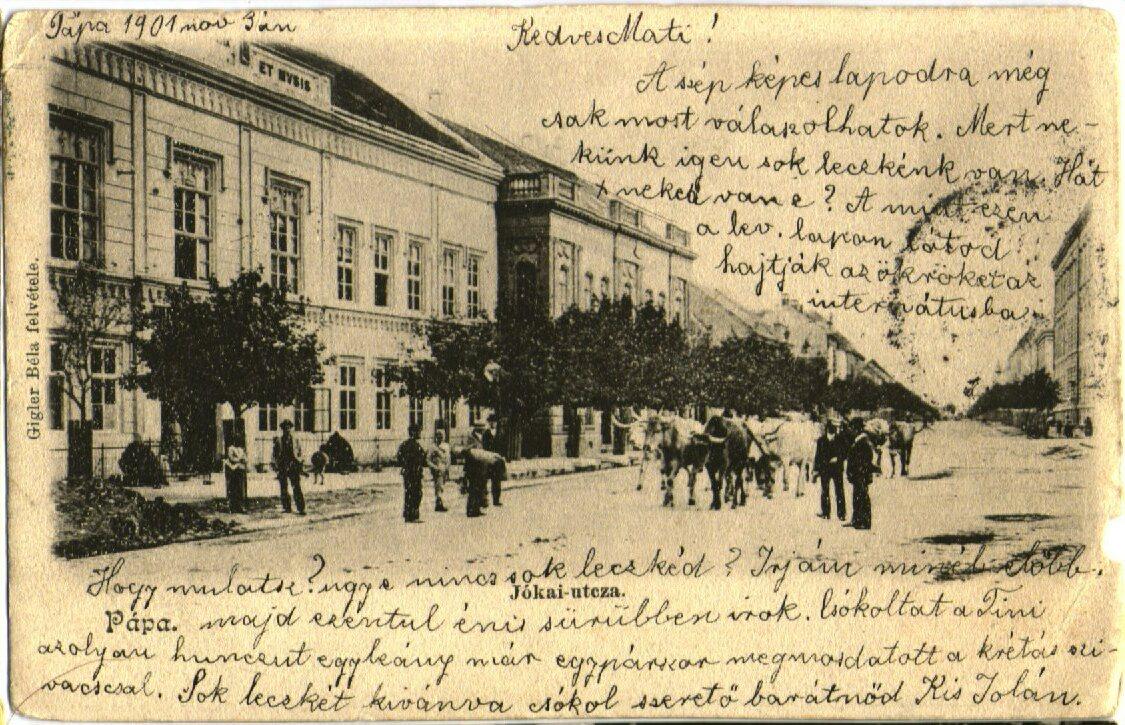 Pápa 1901 nov 3án
Kedves Mati!
A szép képes lapodra még
csak most válaszolhatok. Mert ne-
künk igen sok leczkénk van. Hát
neked van e? A mint ezen
a lev. lapon látod
hajtják az ökröket az
internátusba.
ET NYSIS
Gigler Béla felvétele.
Hogy mulatsz? ugy e nincs sok leczkéd? Irjám minél több.
Jókai-utcza.
Pápa.
majd ezentul én is sürübben irok. Csókoltat a Tini
azolyan hunczut egy leány már egypárszor megmosdatott a krétás szi-
vacscsal. Sok leczkét kivánva csókol szerető barátnőd Kis Jolán.